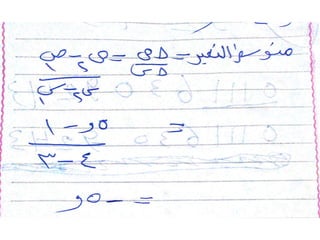 متوسط التغير = Δص/Δس = (ص٢ - ص١)/(س٢ - س١)
= (٥ر٠ - ١)/(٤ - ٣)
= -٥ر٠